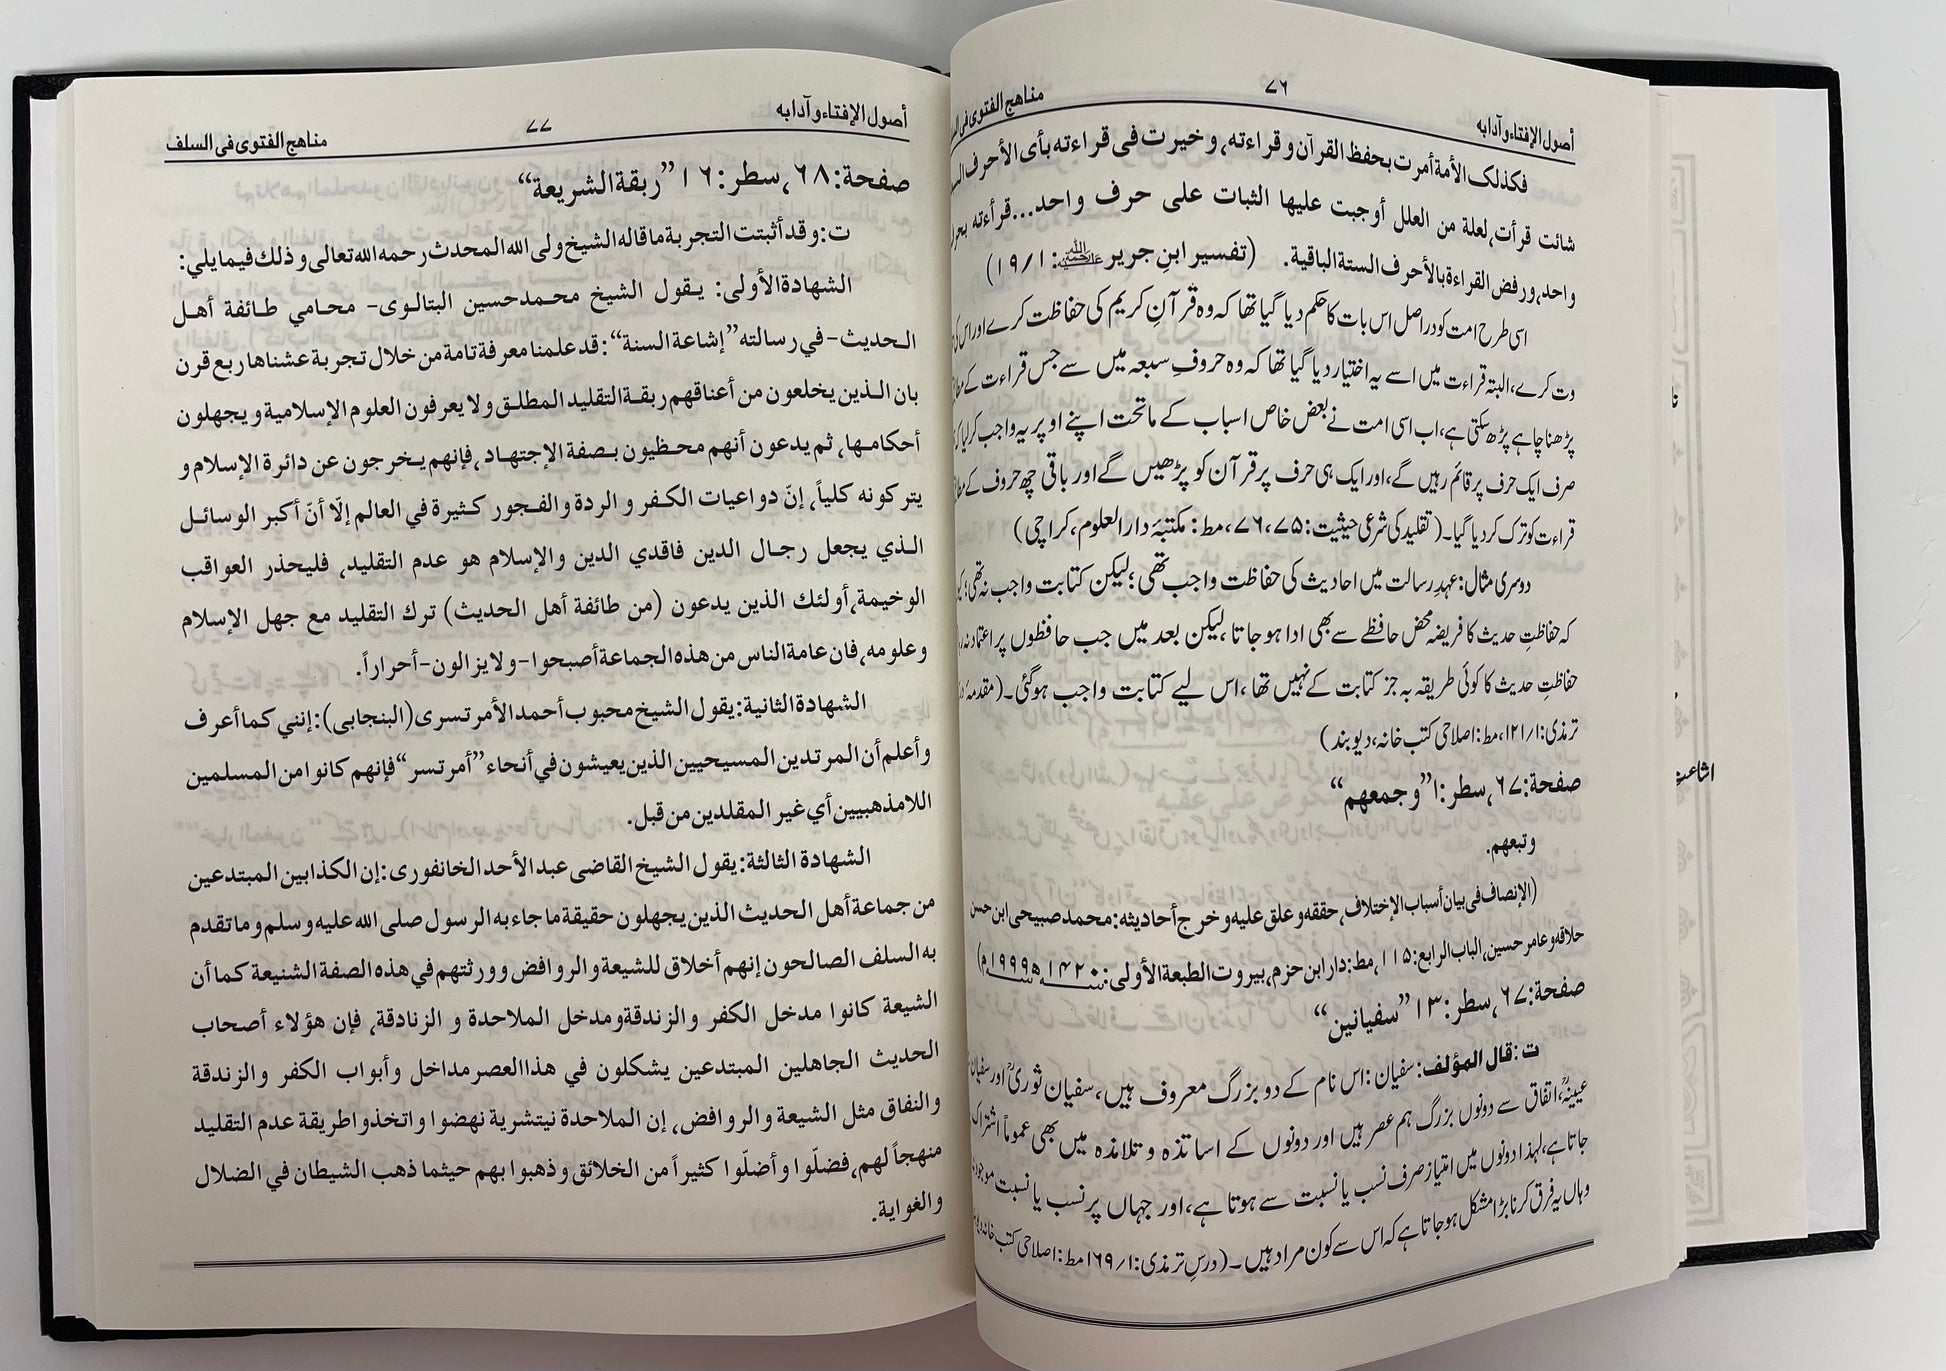 أصول الإفتاء وآدابه
۷۶
مناهج الفتوى فى
فكذلك الأمة أمرت بحفظ القرآن و قراءته، و خيرت فى قراءته بأى الأحرف
شائت قرأت، لعلة من العلل أوجبت عليها الثبات على حرف واحد... قرأءته
واحد، ورفض القراءة بالأحرف الستة الباقية. (تفسير ابنِ جرير: ۱/۱۹)
اسی طرح امت کو دراصل اس بات کا حکم دیا گیا تھا کہ وہ قرآنِ کریم کی حفاظت کرے اور اس کی
وت کرے، البتہ قراءت میں اسے یہ اختیار دیا گیا تھا کہ وہ حروفِ سبعہ میں سے جس قراءت کے
پڑھنا چاہے پڑھ سکتی ہے، اب اسی امت نے بعض خاص اسباب کے ماتحت اپنے اوپر یہ واجب کرلیا
صرف ایک حرف پر قائم رہیں گے، اور ایک ہی حرف پر قرآن کو پڑھیں گے اور باقی چھ حروف کے
قراءت کو ترک کردیا گیا۔ (تقلید کی شرعی حیثیت: ۷۵، ۷۶، مط: مکتبۂ دارالعلوم، کراچی)
دوسری مثال: عہدِ رسالت میں احادیث کی حفاظت واجب تھی؛ لیکن کتابت واجب نہ تھی؛
کہ حفاظتِ حدیث کا فریضہ محض حافظے سے بھی ادا ہوجاتا، لیکن بعد میں جب حافظوں پر اعتماد نہ
حفاظتِ حدیث کا کوئی طریقہ بہ جز کتابت کے نہیں تھا، اس لیے کتابت واجب ہوگئی۔ (مقدمۂ
ترمذی: ۱/۱۲۱، مط: اصلاحی کتب خانہ، دیوبند)
صفحة: ٦٧، سطر: ١ ”و جمعهم“
وتبعهم.
(الإنصاف فى بيان أسباب الإختلاف، حققه و علق عليه و خرج أحاديثه: محمد صبيحى ابن حسن
حلاقه و عامر حسين، الباب الرابع: ١١٥، مط: دار ابن حزم، بيروت الطبعة الأولى: ١٤٢٠ھ ١٩٩٩م)
صفحة: ٦٧، سطر: ١٣ ”سفيانين“
ت: قال المؤلف: سفیان: اس نام کے دو بزرگ معروف ہیں، سفیان ثوریؒ اور سفیان
عیینہؒ، اتفاق سے دونوں بزرگ ہم عصر ہیں اور دونوں کے اساتذہ و تلامذہ میں بھی عموماً اشتراک
جاتا ہے، لہٰذا دونوں میں امتیاز صرف نسب یا نسبت سے ہوتا ہے، اور جہاں پر نسب یا نسبت
وہاں یہ فرق کرنا بڑا مشکل ہوجاتا ہے کہ اس سے کون مراد ہیں۔ (درسِ ترمذی: ۱/۱۶۹ مط: اصلاحی کتب خانہ
أصول الإفتاء و آدابه
۷۷
مناهج الفتوى فى السلف
صفحة: ٦٨، سطر: ١٦ ”ربقة الشريعة“
ت: و قد أثبتت التجربة ما قاله الشيخ ولى الله المحدث رحمه الله تعالى و ذلك فيما يلي:
الشهادة الأولى: يقول الشيخ محمد حسين البتالوى- محامي طائفة أهل
الحديث- في رسالته ”إشاعة السنة“: قد علمنا معرفة تامة من خلال تجربة عشناها ربع قرن
بان الذين يخلعون من أعناقهم ربقة التقليد المطلق و لا يعرفون العلوم الإسلامية و يجهلون
أحكامها، ثم يدعون أنهم محظيون بصفة الإجتهاد، فإنهم يخرجون عن دائرة الإسلام و
يتركونه كلياً، إنّ دواعيات الكفر و الردة و الفجور كثيرة في العالم إلّا أنّ أكبر الوسائل
الذي يجعل رجال الدين فاقدي الدين والإسلام هو عدم التقليد، فليحذر العواقب
الوخيمة، أولئك الذين يدعون (من طائفة أهل الحديث) ترك التقليد مع جهل الإسلام
و علومه، فان عامة الناس من هذه الجماعة أصبحوا- ولا يزالون- أحراراً.
الشهادة الثانية: يقول الشيخ محبوب أحمد الأمرتسرى (البنجابى): إنني كما أعرف
و أعلم أن المرتدين المسيحيين الذين يعيشون في أنحاء ”أمرتسر“ فإنهم كانوا من المسلمين
اللامذهبيين أي غير المقلدين من قبل.
الشهادة الثالثة: يقول الشيخ القاضى عبد الأحد الخانفورى: إن الكذابين المبتدعين
من جماعة أهل الحديث الذين يجهلون حقيقة ما جاء به الرسول صلى الله عليه وسلم و ما تقدم
به السلف الصالحون إنهم أخلاق للشيعة و الروافض و ورثتهم في هذه الصفة الشنيعة كما أن
الشيعة كانوا مدخل الكفر و الزندقة و مدخل الملاحدة و الزنادقة، فإن هؤلاء أصحاب
الحديث الجاهلين المبتدعين يشكلون في هذا العصر مداخل و أبواب الكفر و الزندقة
و النفاق مثل الشيعة و الروافض، إن الملاحدة نيتشرية نهضوا و اتخذوا طريقة عدم التقليد
منهجاً لهم، فضلّوا و أضلّوا كثيراً من الخلائق و ذهبوا بهم حيثما ذهب الشيطان في الضلال
و الغواية.